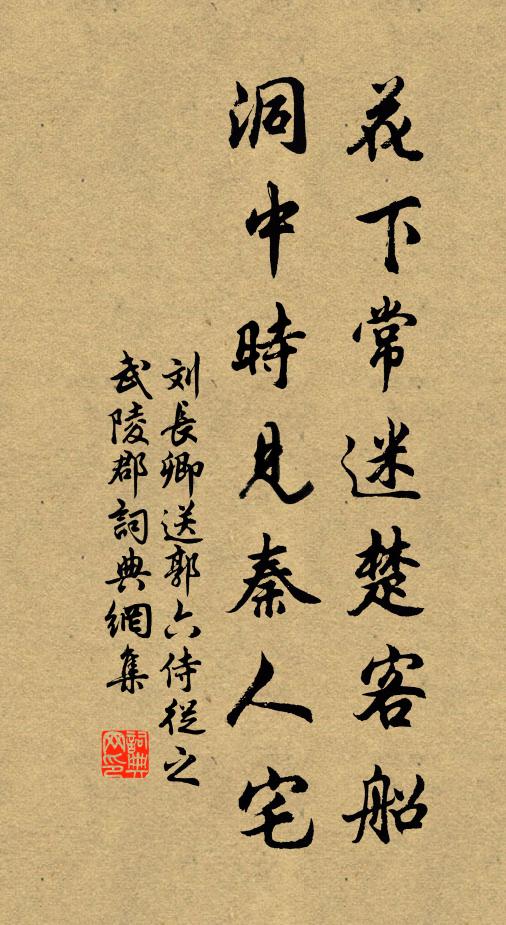 花下常迷楚客船
洞中時見秦人宅
刘長卿送郭六侍從之
武陵郡詞典網集
詞典網印